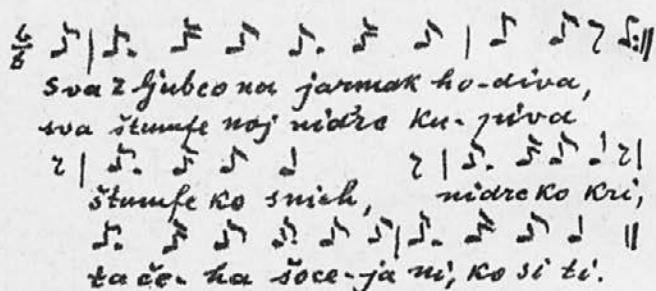 6/8
sva z ljubco na jarmak ho-diva,
sva štumfe noj nidre ku-piva
štumfe ko snieh, nidre ko kri,
ta če-ha šoce-ja ni, ko si ti.